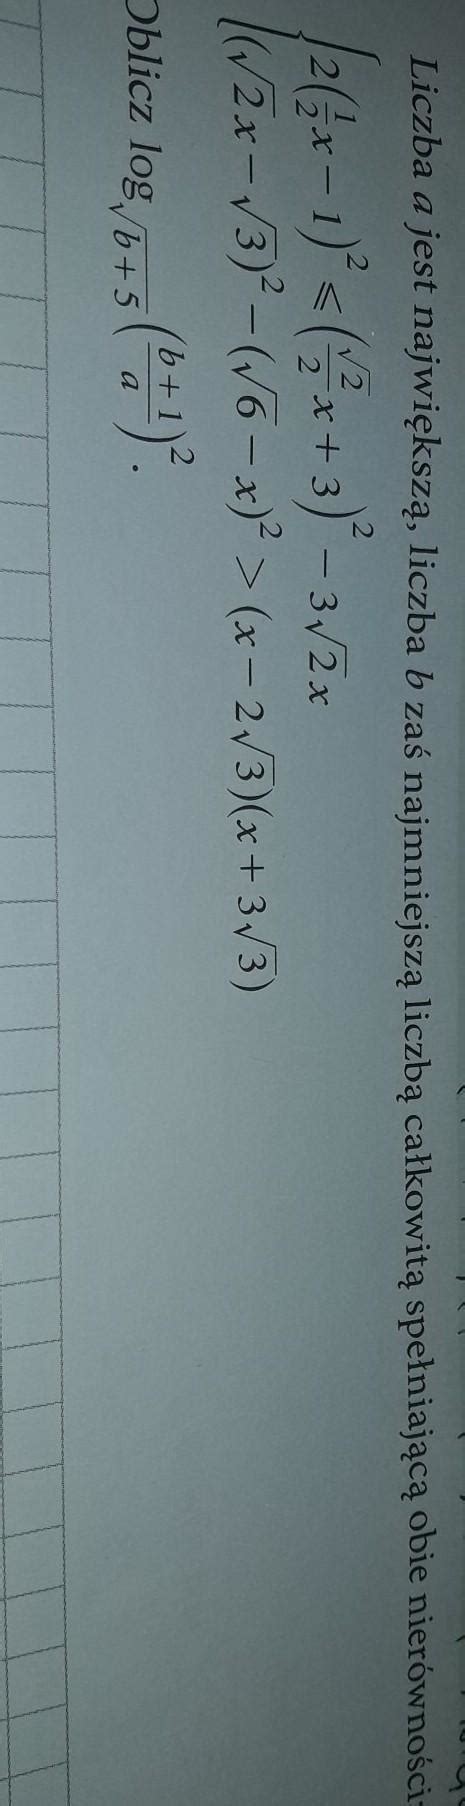 Liczba a jest największą, liczba b zaś najmniejszą liczbą całkowitą spełniającą obie nierówności:
{ 2(1/2 x − 1)² ⩽ (√2/2 x + 3)² − 3√2 x
(√2 x − √3)² − (√6 − x)² > (x − 2√3)(x + 3√3)
Oblicz log_√(b+5) ((b+1)/a)².